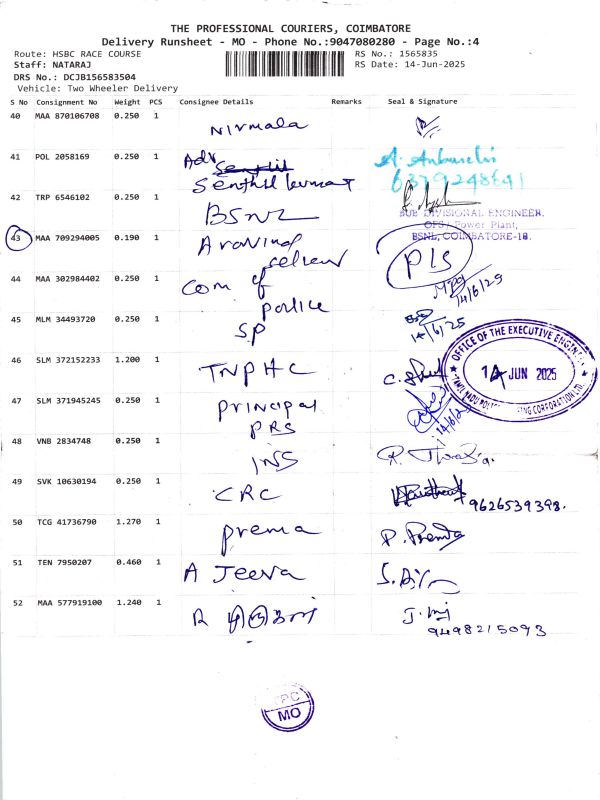 THE PROFESSIONAL COURIERS, COIMBATORE
Delivery Runsheet - MO - Phone No.:9047080280 - Page No.:4
Route: HSBC RACE COURSE
RS No.: 1565835
Staff: NATARAJ
RS Date: 14-Jun-2025
DRS No.: DCJB156583504
Vehicle: Two Wheeler Delivery
S No Consignment No Weight PCS Consignee Details Remarks Seal & Signature
40 MAA 870106708 0.250 1
Nirmala
41 POL 2058169 0.250 1
Adv
Senthil kumar
A. Anbuselvi
6379248641
42 TRP 6546102 0.250 1
BSNL
SUB DIVISIONAL ENGINEER,
OFS/ Power Plant,
BSNL, COIMBATORE-18.
43 MAA 709294005 0.190 1
Aravind
PLS
44 MAA 302984402 0.250 1
Com of
police
14/6/25
45 MLM 34493720 0.250 1
SP
14/6/25
46 SLM 372152233 1.200 1
TNPHC
OFFICE OF THE EXECUTIVE ENGINEER
14 JUN 2025
47 SLM 371945245 0.250 1
principal
PRS
48 VNB 2834748 0.250 1
INS
49 SVK 10630194 0.250 1
CRC
9626539398.
50 TCG 41736790 1.270 1
prema
P. Prema
51 TEN 7950207 0.460 1
A Jeeva
52 MAA 577919100 1.240 1
R முருகன்
9498215093
TPC
MO